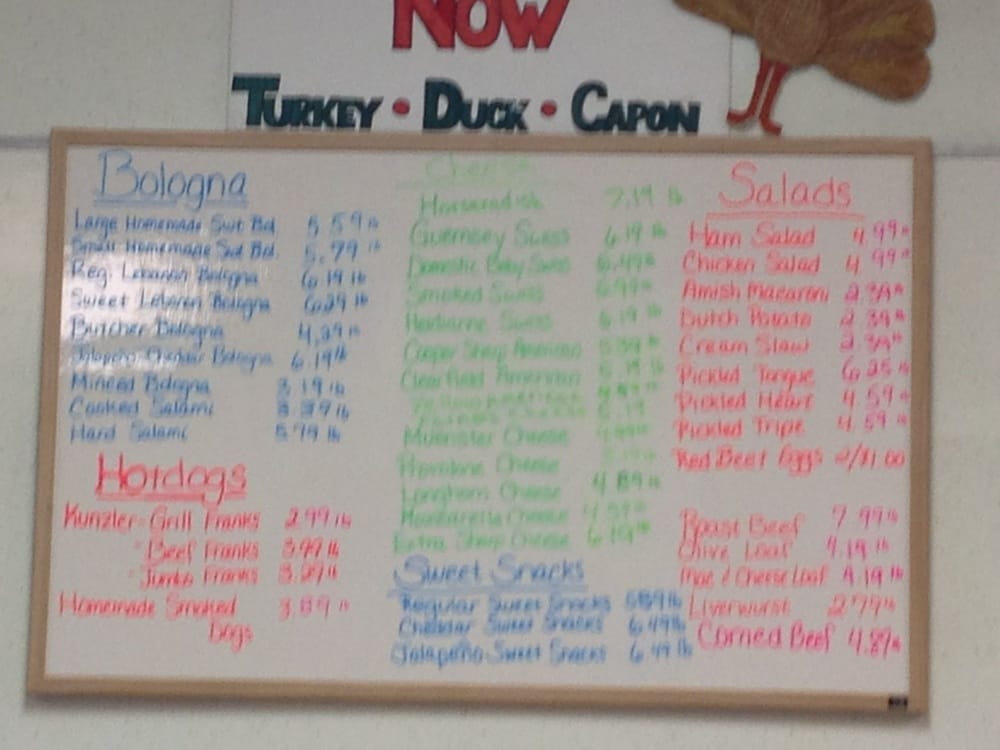 NOW
TURKEY • DUCK • CAPON
Bologna
Large Homemade Swt Bol. 5.59 lb
Small Homemade Swt Bol. 5.79 lb
Reg. Lebanon Bologna 6.19 lb
Sweet Lebanon Bologna 6.29 lb
Butcher Bologna 4.29 lb
Jalapeño Cheddar Bologna 6.19 lb
Minced Bologna 3.19 lb
Cooked Salami 3.39 lb
Hard Salami 5.79 lb
Hotdogs
Kunzler - Grill Franks 2.99 lb
- Beef Franks 3.99 lb
- Jumbo Franks 3.29 lb
Homemade Smoked 3.89 lb
Dogs
Cheese
Horseradish 7.19 lb
Guernsey Swiss 6.19 lb
Domestic Baby Swiss
Smoked Swiss
Swiss 6.19 lb
Cooper Sharp American
Clearfield American
Muenster Cheese
Provolone Cheese
Longhorn Cheese 4.89 lb
Mozzarella Cheese 4.59
Extra Sharp Cheese 6.19
Sweet Snacks
Regular Sweet Snacks 5.89 lb
Cheddar Sweet Snacks 6.49 lb
Jalapeño Sweet Snacks 6.49 lb
Salads
Ham Salad 4.99
Chicken Salad 4.99
Amish Macaroni 2.39
Dutch Potato 2.39
Cream Slaw 2.39
Pickled Tongue 6.25
Pickled Heart 4.59
Pickled Tripe 4.59
Red Beet Eggs 2/$1.00
Roast Beef 7.99
Olive Loaf 4.19 lb
Mac & Cheese Loaf 4.19 lb
Liverwurst 2.79
Corned Beef 4.89